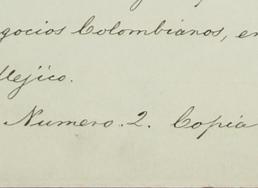 gocios Colombianos, en
Mejico.
Numero. 2. Copia